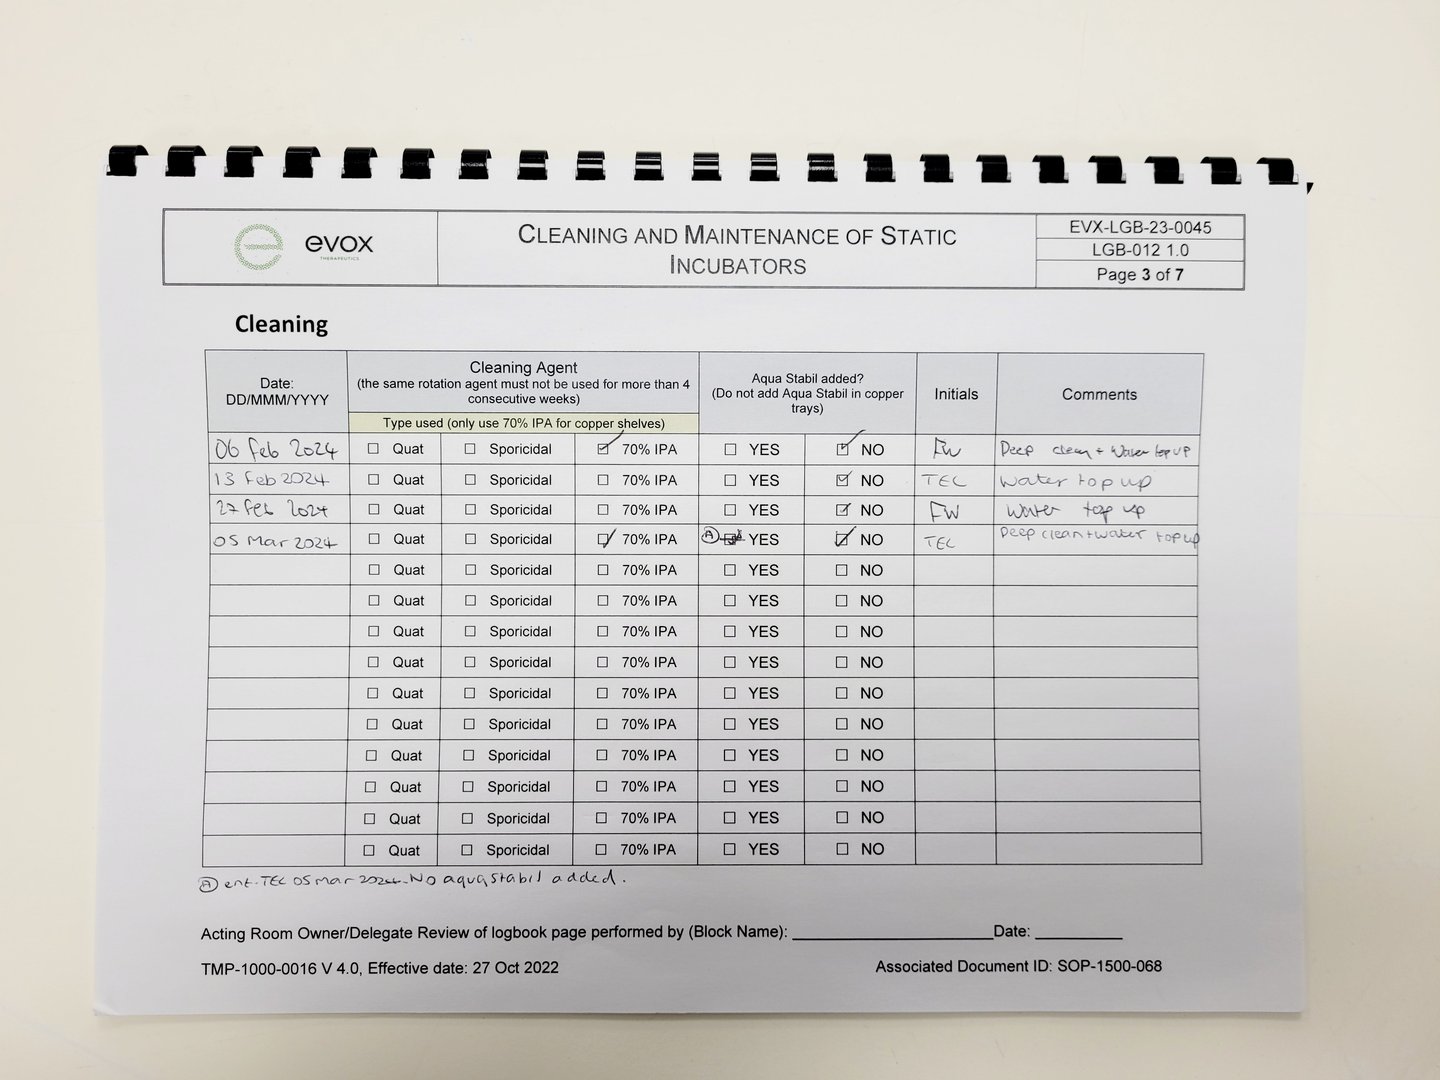 evox
THERAPEUTICS
CLEANING AND MAINTENANCE OF STATIC
INCUBATORS
EVX-LGB-23-0045
LGB-012 1.0
Page 3 of 7
Cleaning
Date:
DD/MMM/YYYY
Cleaning Agent
(the same rotation agent must not be used for more than 4
consecutive weeks)
Type used (only use 70% IPA for copper shelves)
Aqua Stabil added?
(Do not add Aqua Stabil in copper
trays)
Initials
Comments
06 Feb 2024 ☐ Quat ☐ Sporicidal ☑ 70% IPA ☐ YES ☑ NO FW Deep clean + Water top up
13 Feb 2024 ☐ Quat ☐ Sporicidal ☐ 70% IPA ☐ YES ☑ NO TEC Water top up
27 Feb 2024 ☐ Quat ☐ Sporicidal ☐ 70% IPA ☐ YES ☑ NO FW Water top up
05 Mar 2024 ☐ Quat ☐ Sporicidal ☑ 70% IPA Ⓐ YES ☑ NO TEC Deep clean + water top up
☐ Quat ☐ Sporicidal ☐ 70% IPA ☐ YES ☐ NO
☐ Quat ☐ Sporicidal ☐ 70% IPA ☐ YES ☐ NO
☐ Quat ☐ Sporicidal ☐ 70% IPA ☐ YES ☐ NO
☐ Quat ☐ Sporicidal ☐ 70% IPA ☐ YES ☐ NO
☐ Quat ☐ Sporicidal ☐ 70% IPA ☐ YES ☐ NO
☐ Quat ☐ Sporicidal ☐ 70% IPA ☐ YES ☐ NO
☐ Quat ☐ Sporicidal ☐ 70% IPA ☐ YES ☐ NO
☐ Quat ☐ Sporicidal ☐ 70% IPA ☐ YES ☐ NO
☐ Quat ☐ Sporicidal ☐ 70% IPA ☐ YES ☐ NO
☐ Quat ☐ Sporicidal ☐ 70% IPA ☐ YES ☐ NO
Ⓐ ent. TEC 05 Mar 2024. No aquastabil added.
Acting Room Owner/Delegate Review of logbook page performed by (Block Name): Date:
TMP-1000-0016 V 4.0, Effective date: 27 Oct 2022
Associated Document ID: SOP-1500-068